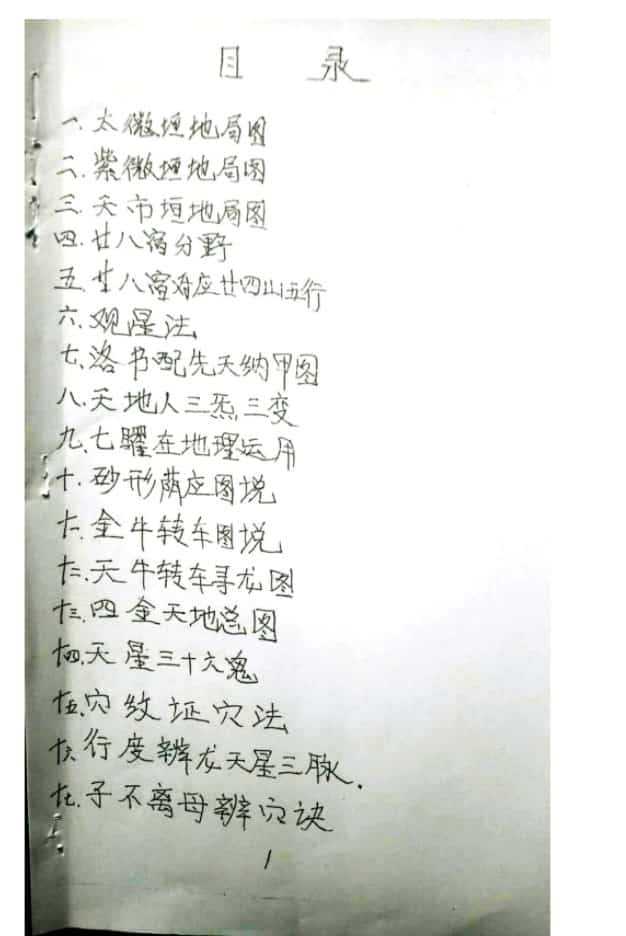 目 录
一. 太微垣地局图
二. 紫微垣地局图
三. 天市垣地局图
四. 廿八宿分野
五. 廿八宿对应廿四山五行
六. 观星法
七. 洛书配先天纳甲图
八. 天地人三炁三变
九. 七曜在地理运用
十. 砂形荫应图说
十一. 金牛转车图说
十二. 天牛转车寻龙图
十三. 四金天地总图
十四. 天星三十六鬼
十五. 穴纹证穴法
十六. 行度辨龙天星三脉.
十七. 子不离母辨穴诀
1